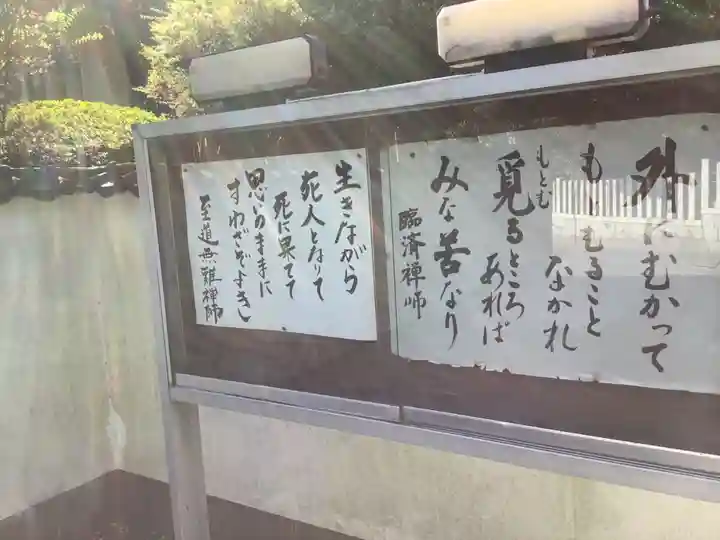 外にむかって
もとむること
なかれ
もとむ
覓るところ
あれば
みな苦なり
臨済禅師
生きながら
死人となりて
死に果てて
思いのままに
すわざぞよき
至道無難禅師